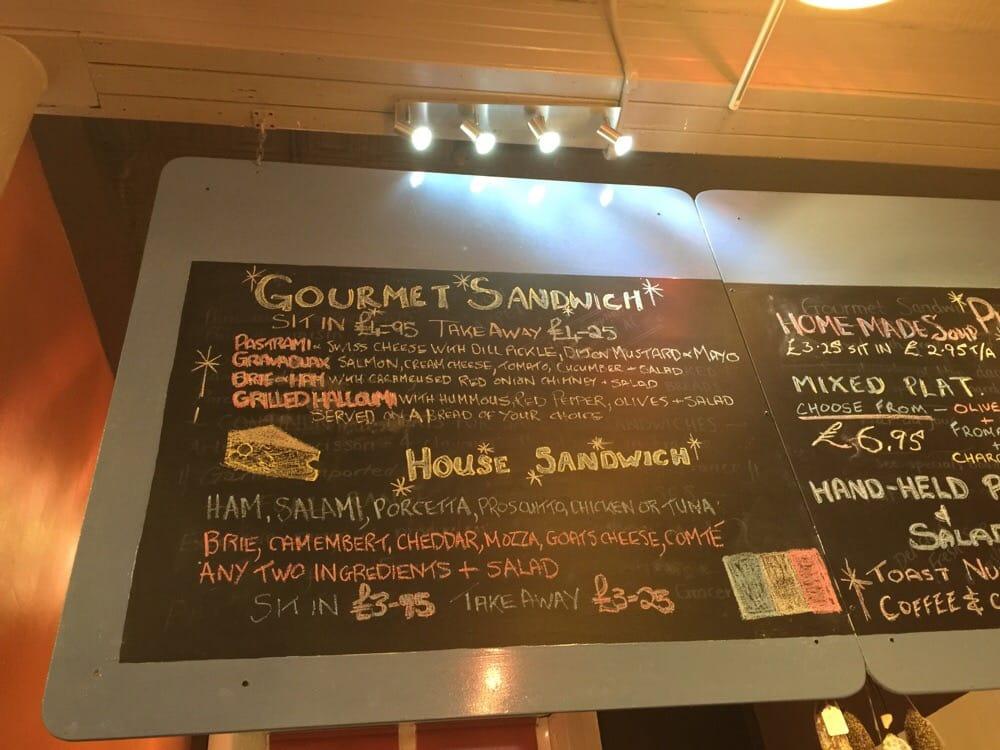 GOURMET SANDWICH
SIT IN £4-95 TAKE AWAY £4-25
PASTRAMI - SWISS CHEESE WITH DILL PICKLE, DIJON MUSTARD + MAYO
GRAVADLAX SALMON, CREAM CHEESE, TOMATO, CUCUMBER + SALAD
BRIE + HAM WITH CARAMELISED RED ONION CHUTNEY + SALAD
GRILLED HALLOUMI WITH HUMMOUS, RED PEPPER, OLIVES + SALAD
SERVED ON A BREAD OF YOUR CHOICE
HOUSE SANDWICH
HAM, SALAMI, PORCETTA, PROSCUTTO, CHICKEN OR TUNA
BRIE, CAMEMBERT, CHEDDAR, MOZZA, GOATS CHEESE, COMTÉ
ANY TWO INGREDIENTS + SALAD
SIT IN £3-95 TAKE AWAY £3-25
HOME MADE SOUP
£3.25 SIT IN £2.95 T/A
MIXED PLAT.
CHOOSE FROM - OLIVE
+
FROMA
+
£6.95
CHARC
HAND-HELD P
&
SALAD
TOAST NU
COFFEE &